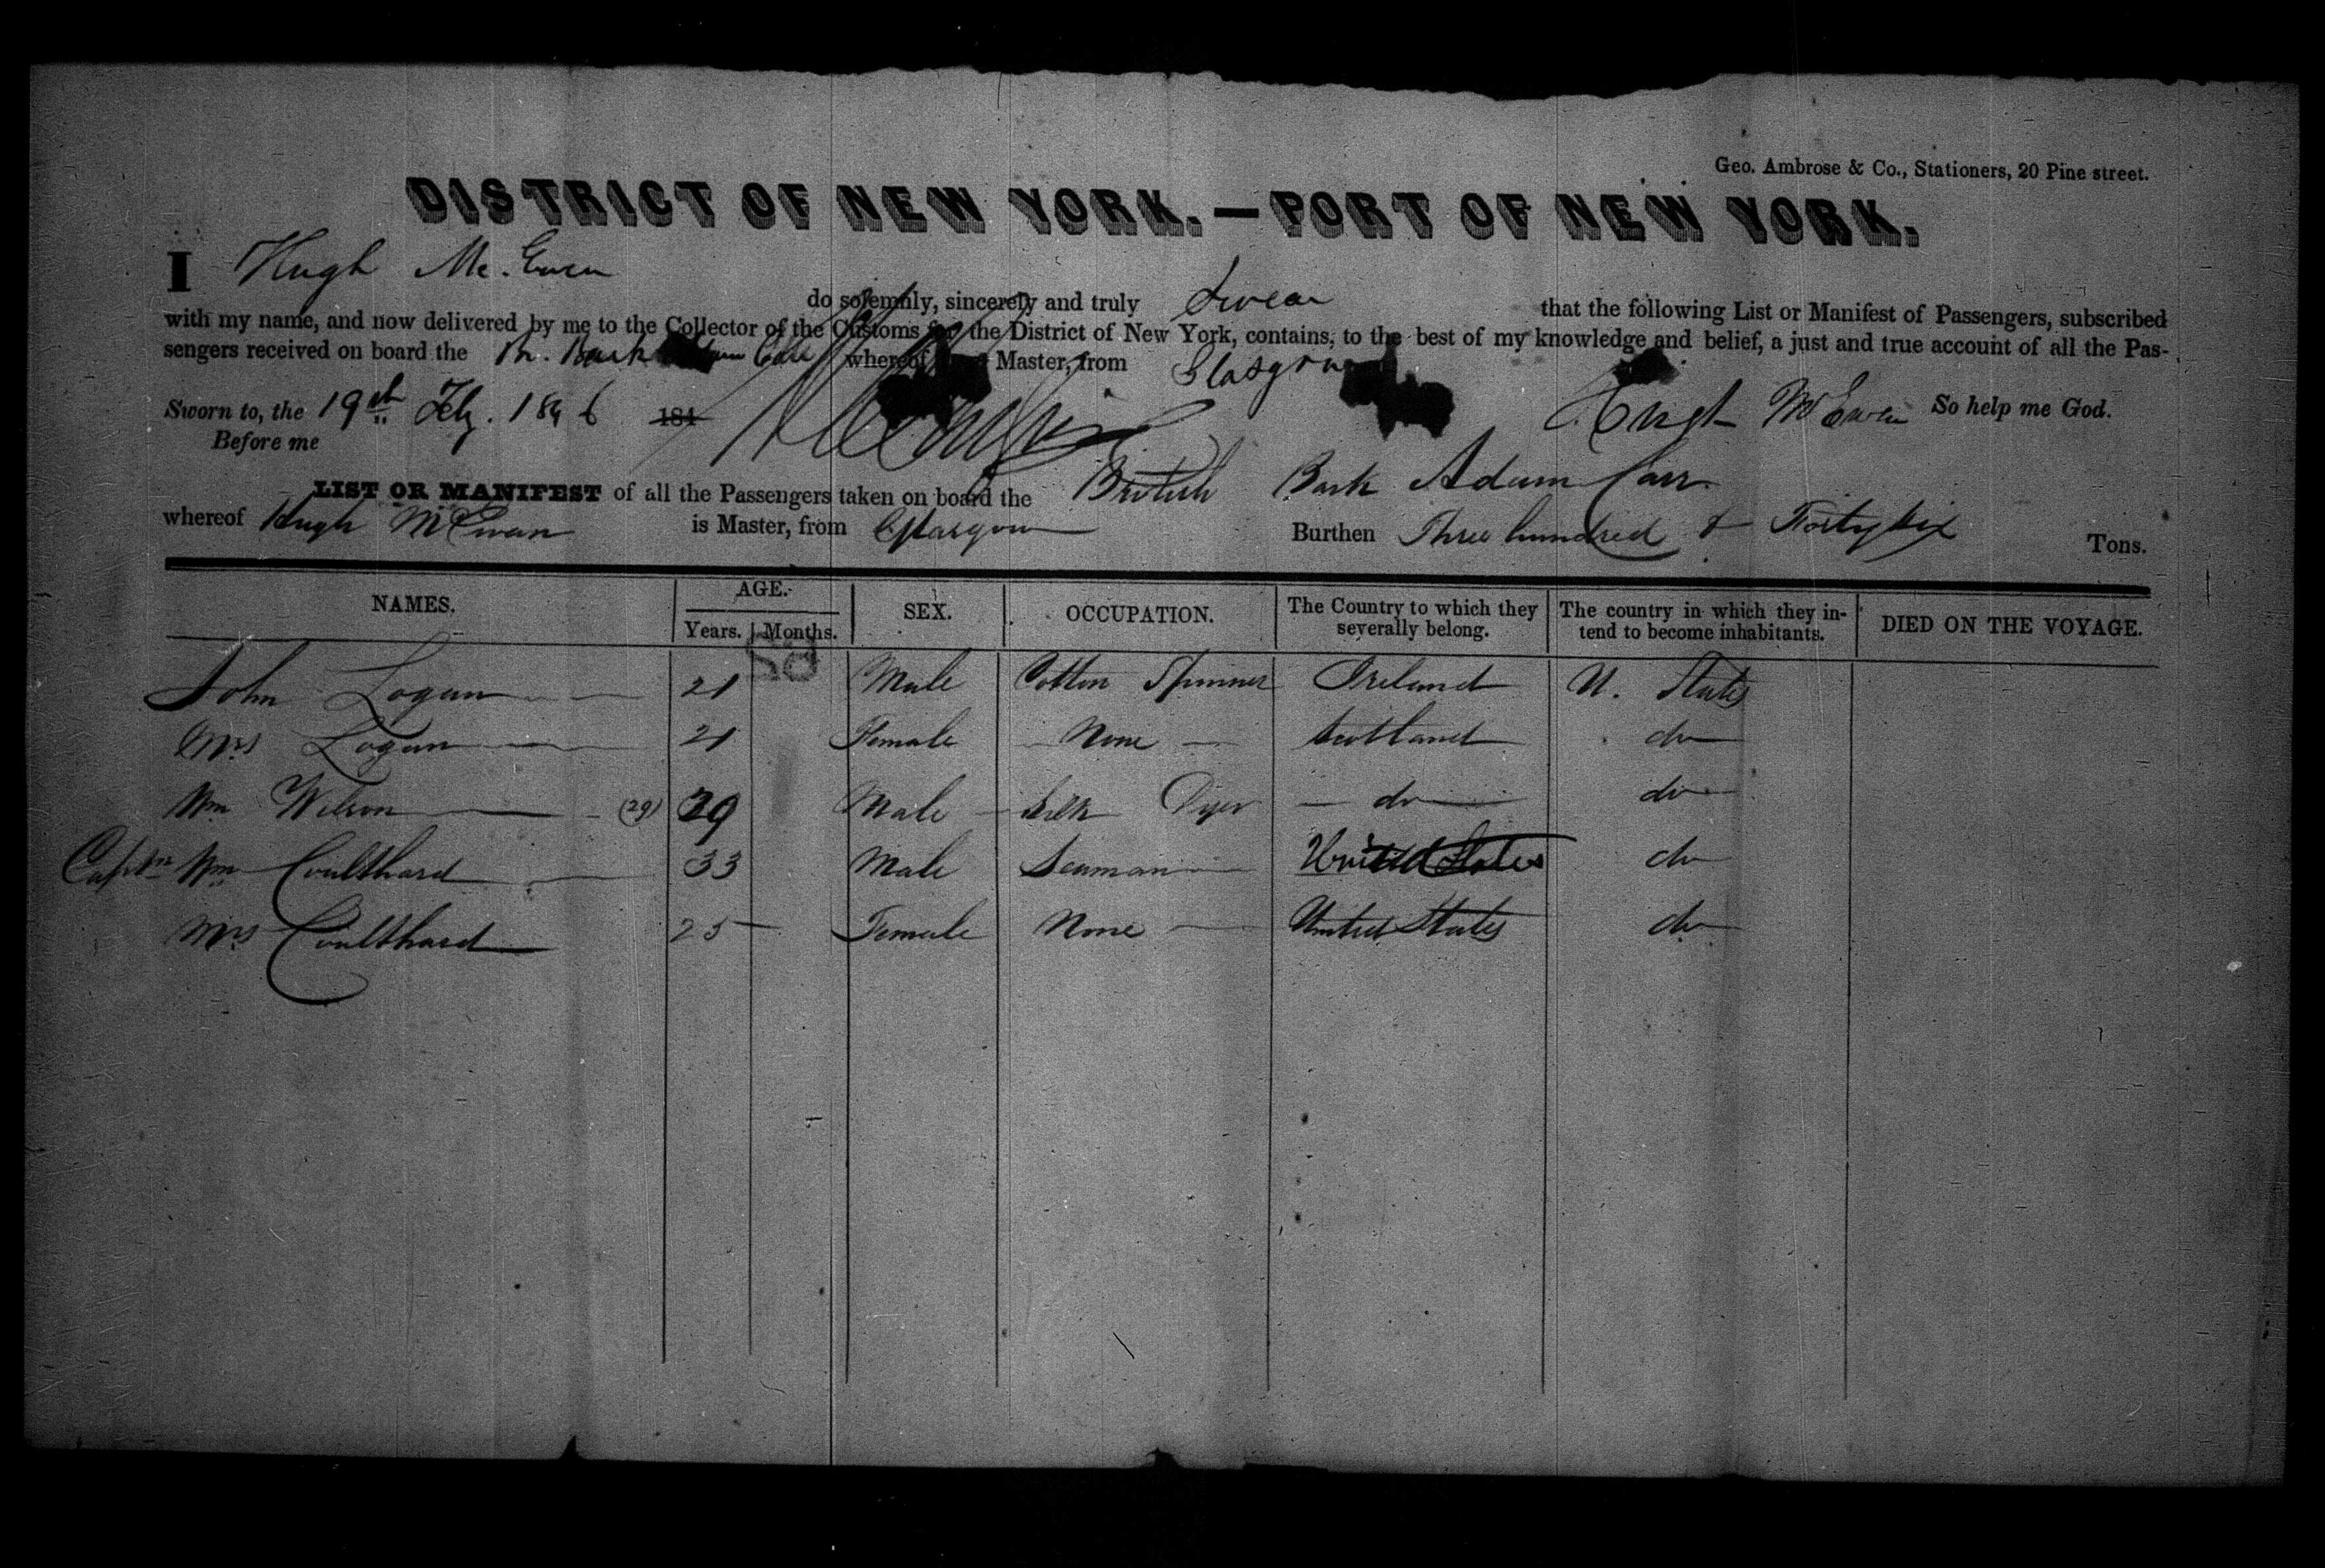 Geo. Ambrose & Co., Stationers, 20 Pine street.
DISTRICT OF NEW YORK.—PORT OF NEW YORK.
I Hugh Mc. Ewen do solemnly, sincerely and truly Swear that the following List or Manifest of Passengers, subscribed
with my name, and now delivered by me to the Collector of the Customs for the District of New York, contains, to the best of my knowledge and belief, a just and true account of all the Pas-
sengers received on board the Br. Bark whereof Master, from Glasgow
Sworn to, the 19th Feby. 1846 184 Hugh McEwen So help me God.
Before me
LIST OR MANIFEST of all the Passengers taken on board the British Bark Adam Carr
whereof Hugh McEwan is Master, from Glasgow Burthen Three hundred & Forty six Tons.
NAMES. AGE. Years. Months. SEX. OCCUPATION. The Country to which they severally belong. The country in which they in-tend to become inhabitants. DIED ON THE VOYAGE.
John Logan 21 Male Cotton Spinner Ireland U. States
Mrs Logan 21 Female None Scotland do
Wm Wilson (29) 29 Male Silk Dyer do do
Captn Wm Coulthard 33 Male Seaman United States do
Mrs Coulthard 25 Female None United States do